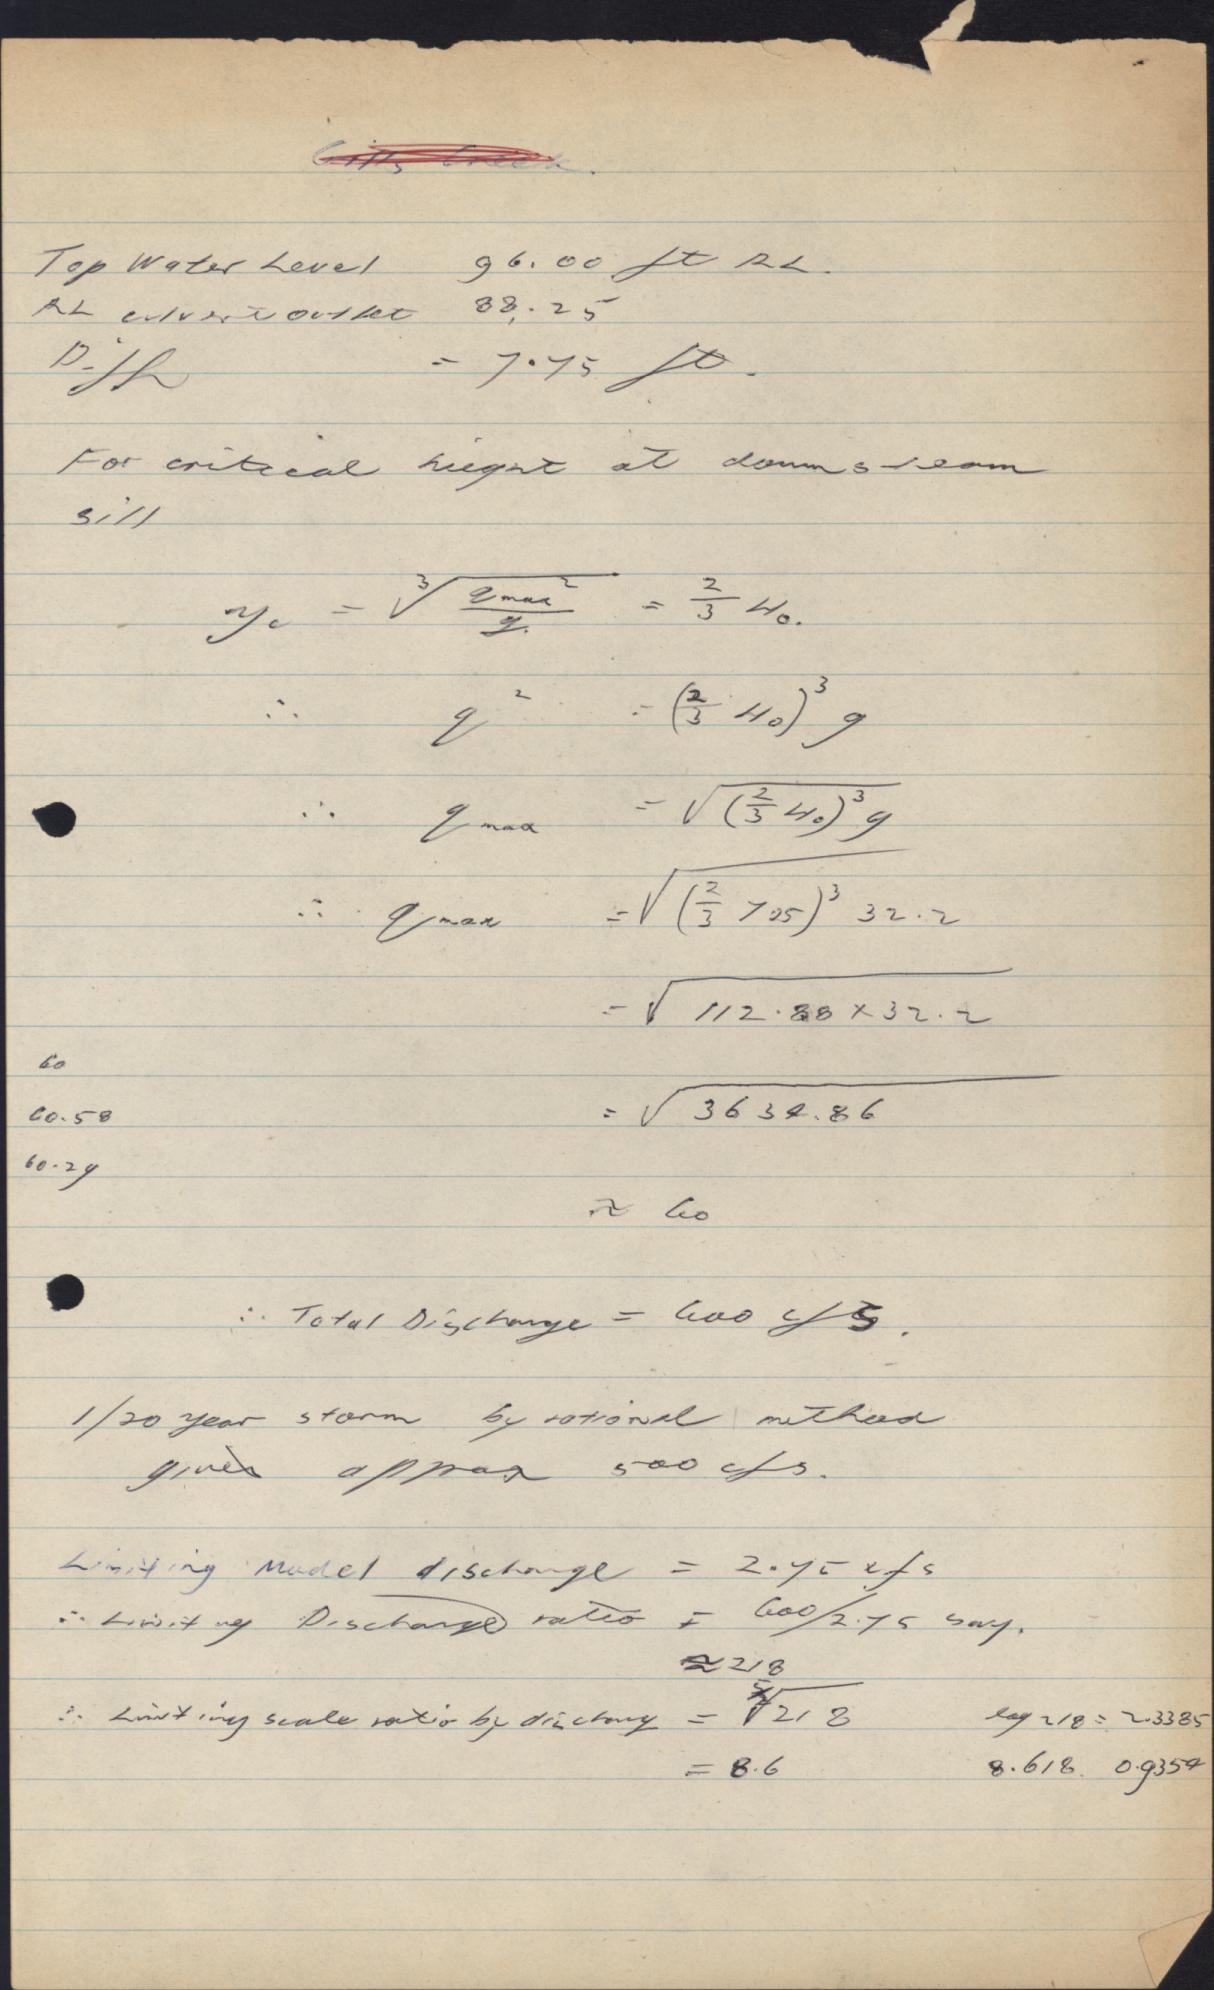 Gills Creek.
Top Water Level 96.00 ft RL.
RL culvert outlet 88.25
Diff = 7.75 ft.
For critical height at downstream
sill
y_c = ∛(q_max²/g) = 2/3 H₀.
∴ q² = (2/3 H₀)³ g
∴ q max = √((2/3 H₀)³ g)
∴ q max = √((2/3 7.25)³ 32.2)
= √(112.88 × 32.2)
60
60.58 = √(3634.86)
60.29
≈ 60
∴ Total Discharge = 600 cfs.
1/20 year storm by rational method
gives approx 500 cfs.
Limiting Model discharge = 2.75 cfs
∴ Limiting Discharge ratio = 600/2.75 say.
≈ 218
∴ Limiting scale ratio by discharg = ⁵⁄²√218 log 218 = 2.3385
= 8.6 8.618 0.9354